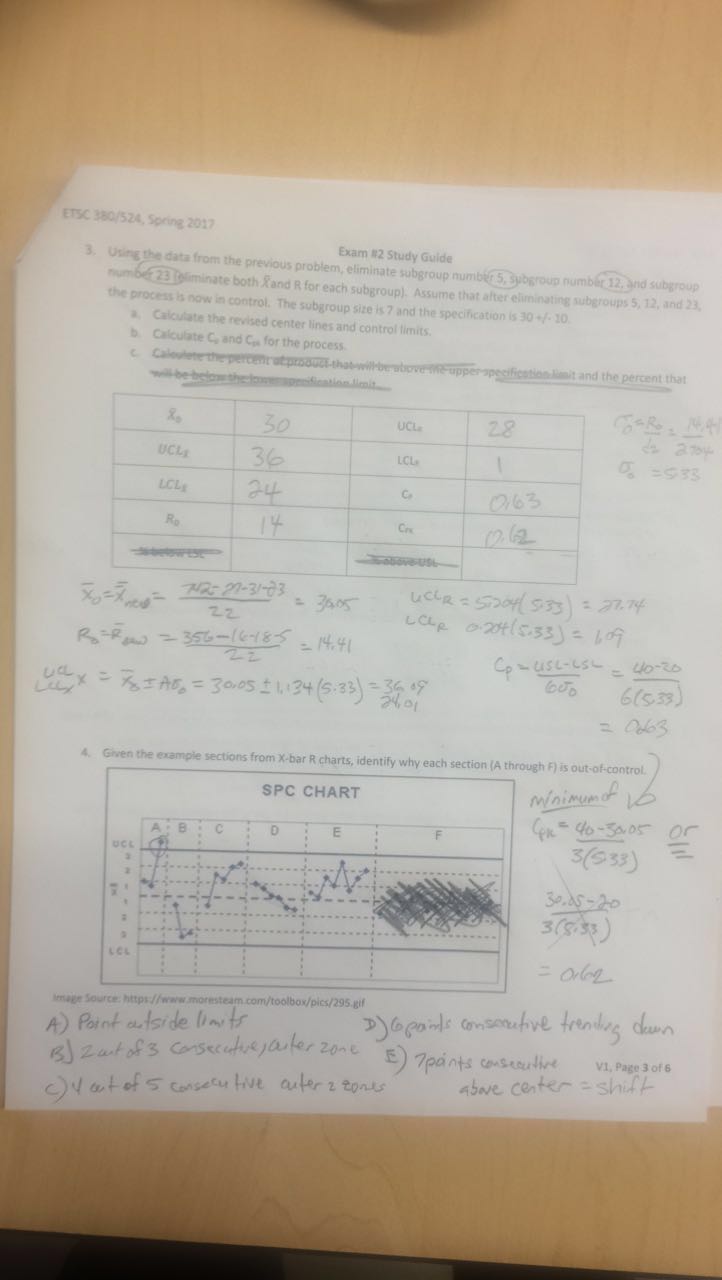 ETSC 380/524, Spring 2017
Exam #2 Study Guide
3. Using the data from the previous problem, eliminate subgroup number 5, subgroup number 12, and subgroup
number 23 (eliminate both X̄ and R for each subgroup). Assume that after eliminating subgroups 5, 12, and 23,
the process is now in control. The subgroup size is 7 and the specification is 30 +/- 10.
a. Calculate the revised center lines and control limits.
b. Calculate Cp and Cpk for the process.
c. Calculate the percent of product that will be above the upper specification limit and the percent that
will be below the lower specification limit.
X̄₀ 30 UCLR 28
UCLX̄ 36 LCLR 1
LCLX̄ 24 Cp 0.63
R₀ 14 CPK 0.62
% below LSL % above USL
σ₀ = R₀/d₂ = 14.41/2.704
σ₀ = 5.33
X̄₀ = X̿new = -27-31-23 / 22 = 30.05
R₀ = R̄new = 356-16-18-5 / 22 = 14.41
X = X̄₀ ± Aσ₀ = 30.05 ± 1.134(5.33) = 36.09
24.01
UCLR = 5.204(5.33) = 27.74
LCLR 0.204(5.33) = 1.09
Cp = USL-LSL / 6σ₀ = 40-20 / 6(5.33)
= 0.63
4. Given the example sections from X-bar R charts, identify why each section (A through F) is out-of-control.
SPC CHART
A B C D E F
UCL
3
2
1
X̿
1
2
3
LCL
minimum of
Cpk = 40-30.05 / 3(5.33) or
30.05-20 / 3(5.33)
= 0.62
Image Source: https://www.moresteam.com/toolbox/pics/295.gif
A) Point outside limits
B) 2 out of 3 consecutive, outer zone
C) 4 out of 5 consecutive outer 2 zones
D) 6 points consecutive trending down
E) 7 points consecutive
above center = shift
V1, Page 3 of 6